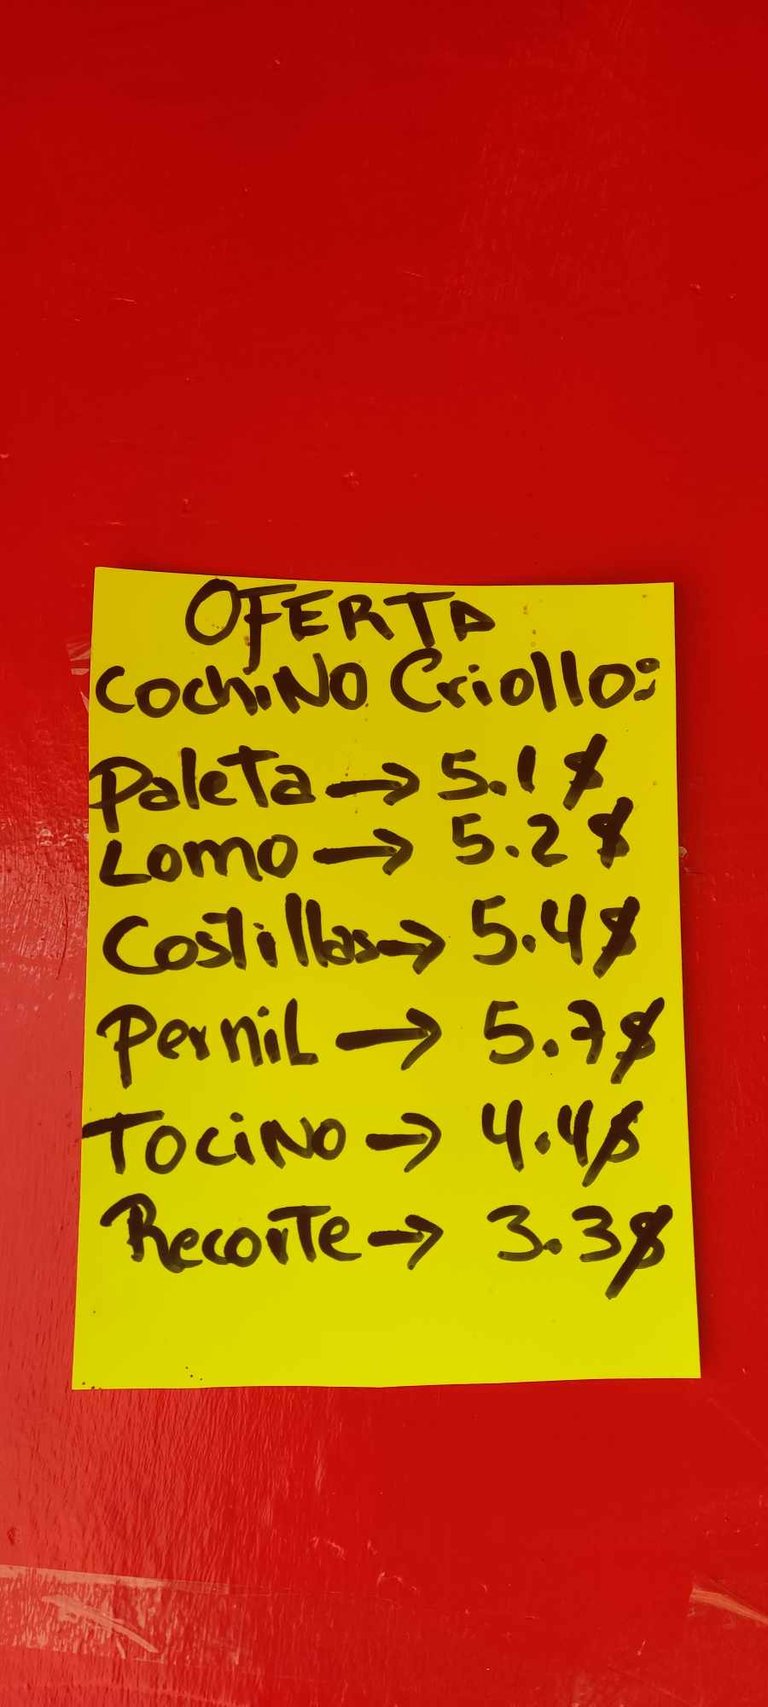 OFERTA
Cochino Criollo:
Paleta → 5.1 $
Lomo → 5.2 $
Costillas → 5.4 $
Pernil → 5.7 $
Tocino → 4.4 $
Recorte → 3.3 $